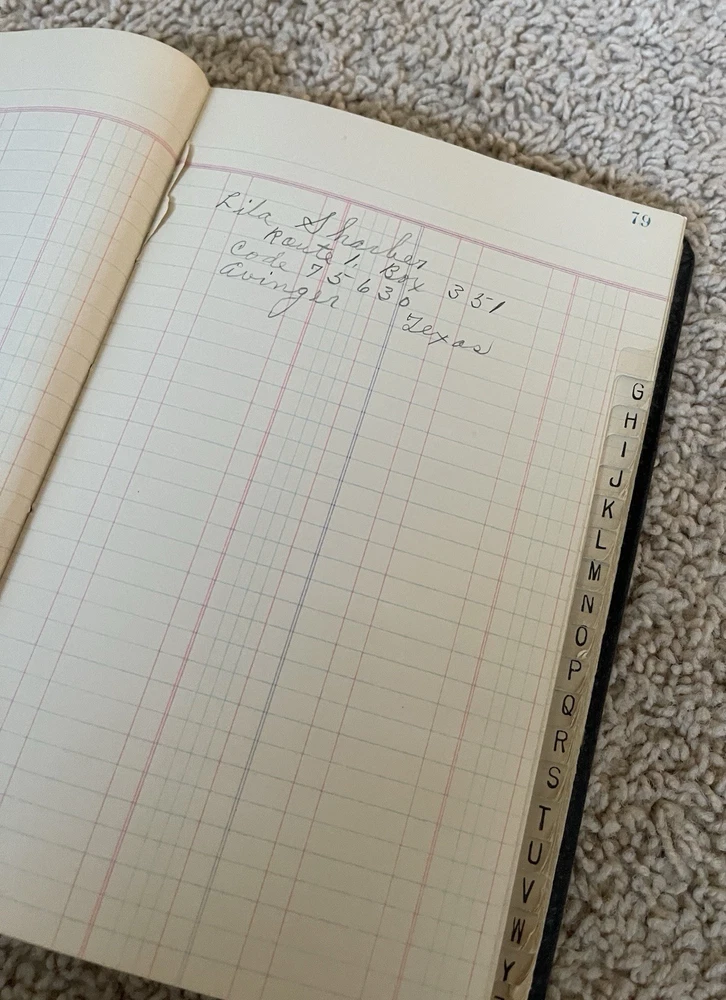 79
Lila Sharber
Route 1, Box 351
Code 75630
Avinger Texas
G
H
I
J
K
L
M
N
O
P
Q
R
S
T
U
V
W
Y